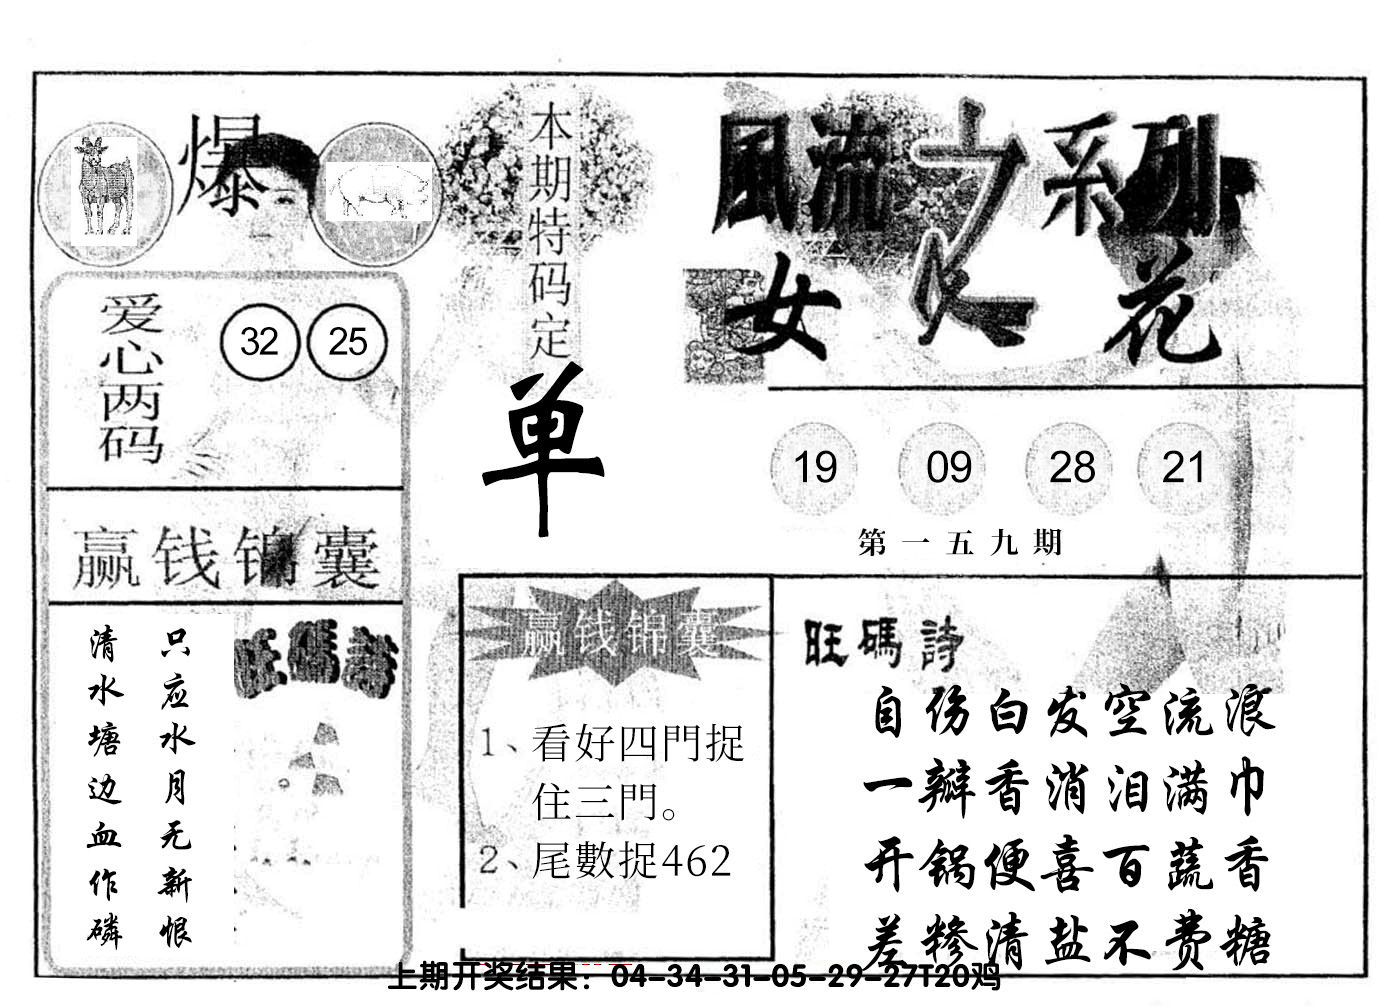 爆
本期特码定
单
風流之系列
女人花
爱心两码
32 25
19 09 28 21
第一五九期
赢钱锦囊
只应水月无新恨
清水塘边血作磷
旺碼詩
赢钱锦囊
1、看好四門捉
住三門。
2、尾數捉462
旺碼詩
自伤白发空流浪
一瓣香消泪满巾
开锅便喜百蔬香
差糁清盐不费糖
上期开奖结果：04-34-31-05-29-27T20鸡